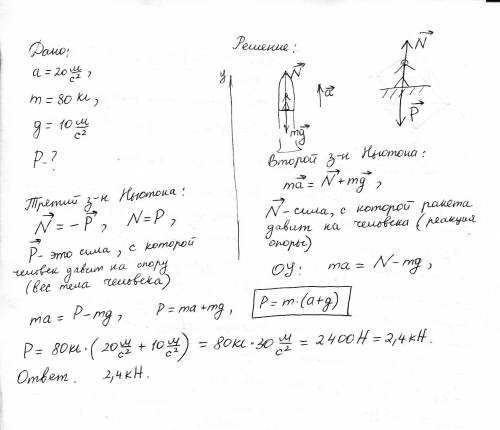 Дано:
a = 20 м/с²,
m = 80 кг,
g = 10 м/с²
P - ?
Решение:
y
N
a
mg
N
P
Второй з-н Ньютона:
ma = N + mg,
N - сила, с которой ракета
давит на человека (реакция
опоры)
OY: ma = N - mg,
Третий з-н Ньютона:
N = -P, N = P,
P - это сила, с которой
человек давит на опору
(вес тела человека)
ma = P - mg, P = ma + mg, P = m·(a+g)
P = 80кг·(20 м/с² + 10 м/с²) = 80кг·30 м/с² = 2400Н = 2,4кН.
Ответ. 2,4кН.